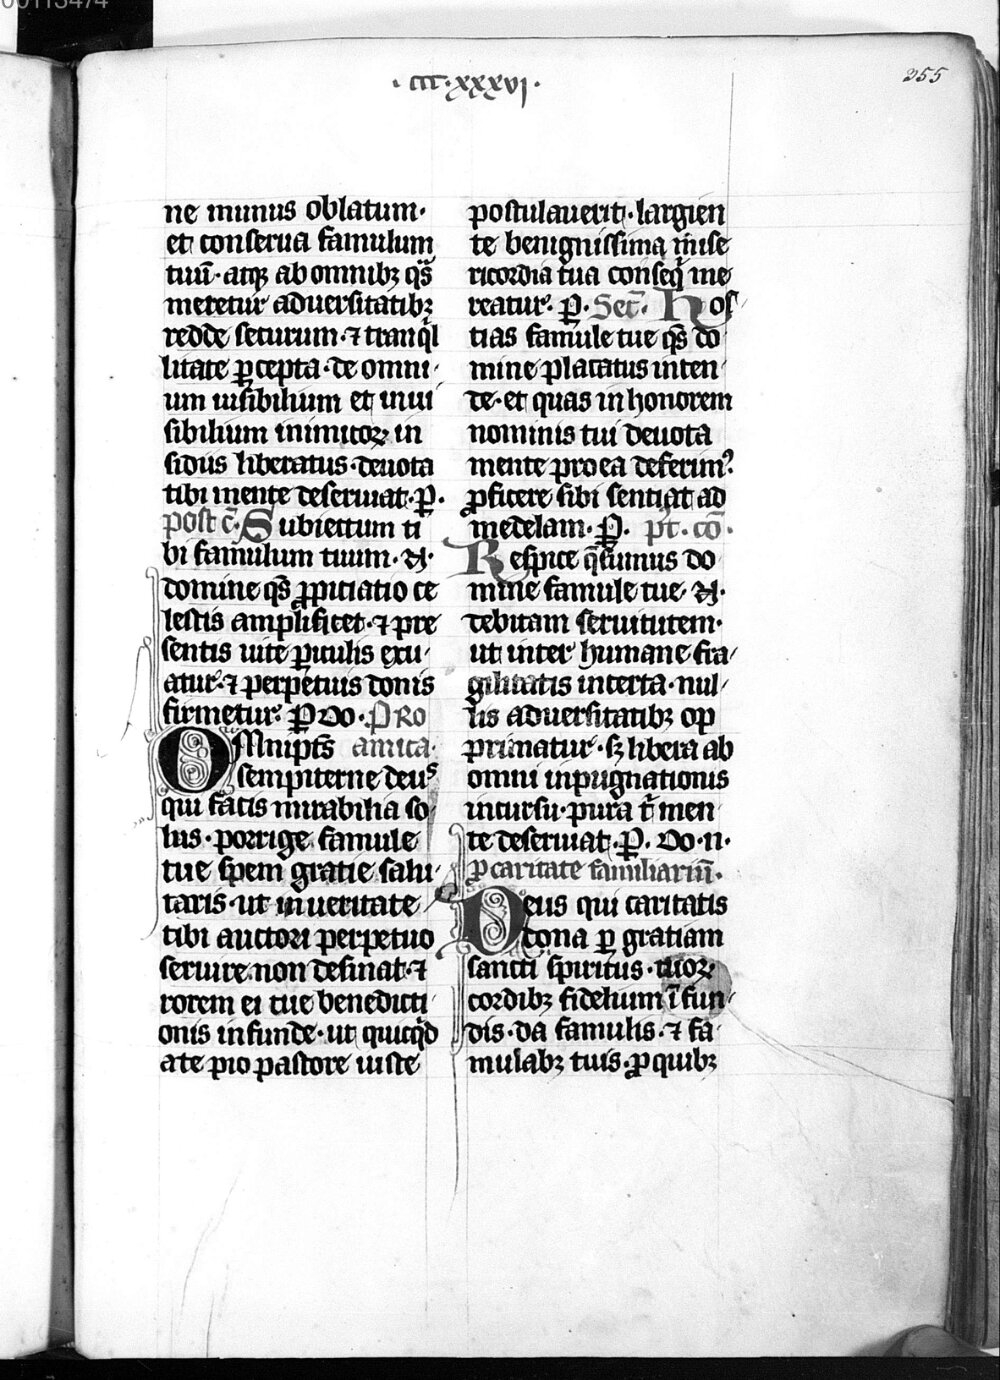 00113474
· ccc · xxxvj ·
255
ne munus oblatum·
et conserua famulum
tuū· atqꝫ ab omnibꝫ qs̄
metetur aduersitatibꝫ
redde securum· ⁊ tranqͥl
litate ꝑcepta· de omni
um uisibilium et inui
sibilium inimicoꝝ in
sidiis liberatus· deuota
tibi mente deseruiat· ꝑ·
post c̄· Subiectum ti
bi famulum tuum· N·
domine qs̄ ꝓpiciatio ce
lestis amplificet· ⁊ pre
sentis uite ꝑiculis exu
atur· ⁊ perpetuis donis
firmetur· ꝑ Do· PRO
OMnipt̄s amica·
sempiterne deuˢ
qui facis mirabilia so
lus· porrige famule
tue spem gratie salu
taris· ut in ueritate
tibi auctori perpetuo
seruire non desinat· ⁊
rorem ei tue benedicti
onis infunde· ut quicqͥd
a te pio pastore iuste
postulauerit· largien
te benignissima mise
ricordia tua conseqͥ me
reatur· ꝑ· Sec̄· Hos
tias famule tue qs̄ do
mine placatus inten
de· et quas in honorem
nominis tui deuota
mente pro ea deferimꝰ
ꝓficere sibi sentiat ad
medelam· ꝑ· pt̄· cō·
Respice q̄sumus do
mine famule tue· N·
debitam seruitutem·
ut inter humane fra
gilitatis incerta· nul
lis aduersitatibꝫ op
primatur· sꝫ libera ab
omni inpugnationis
incursu· pura t̄ men
te deseruiat· ꝑ· Do· n·
ꝓ caritate familiariū·
Deus qui caritatis
dona ꝑ gratiam
sancti spiritus· tuoꝝ
cordibꝫ fidelium ī fun
dis· da famulis· ⁊ fa
mulabꝫ tuis· ꝓ quibꝫ